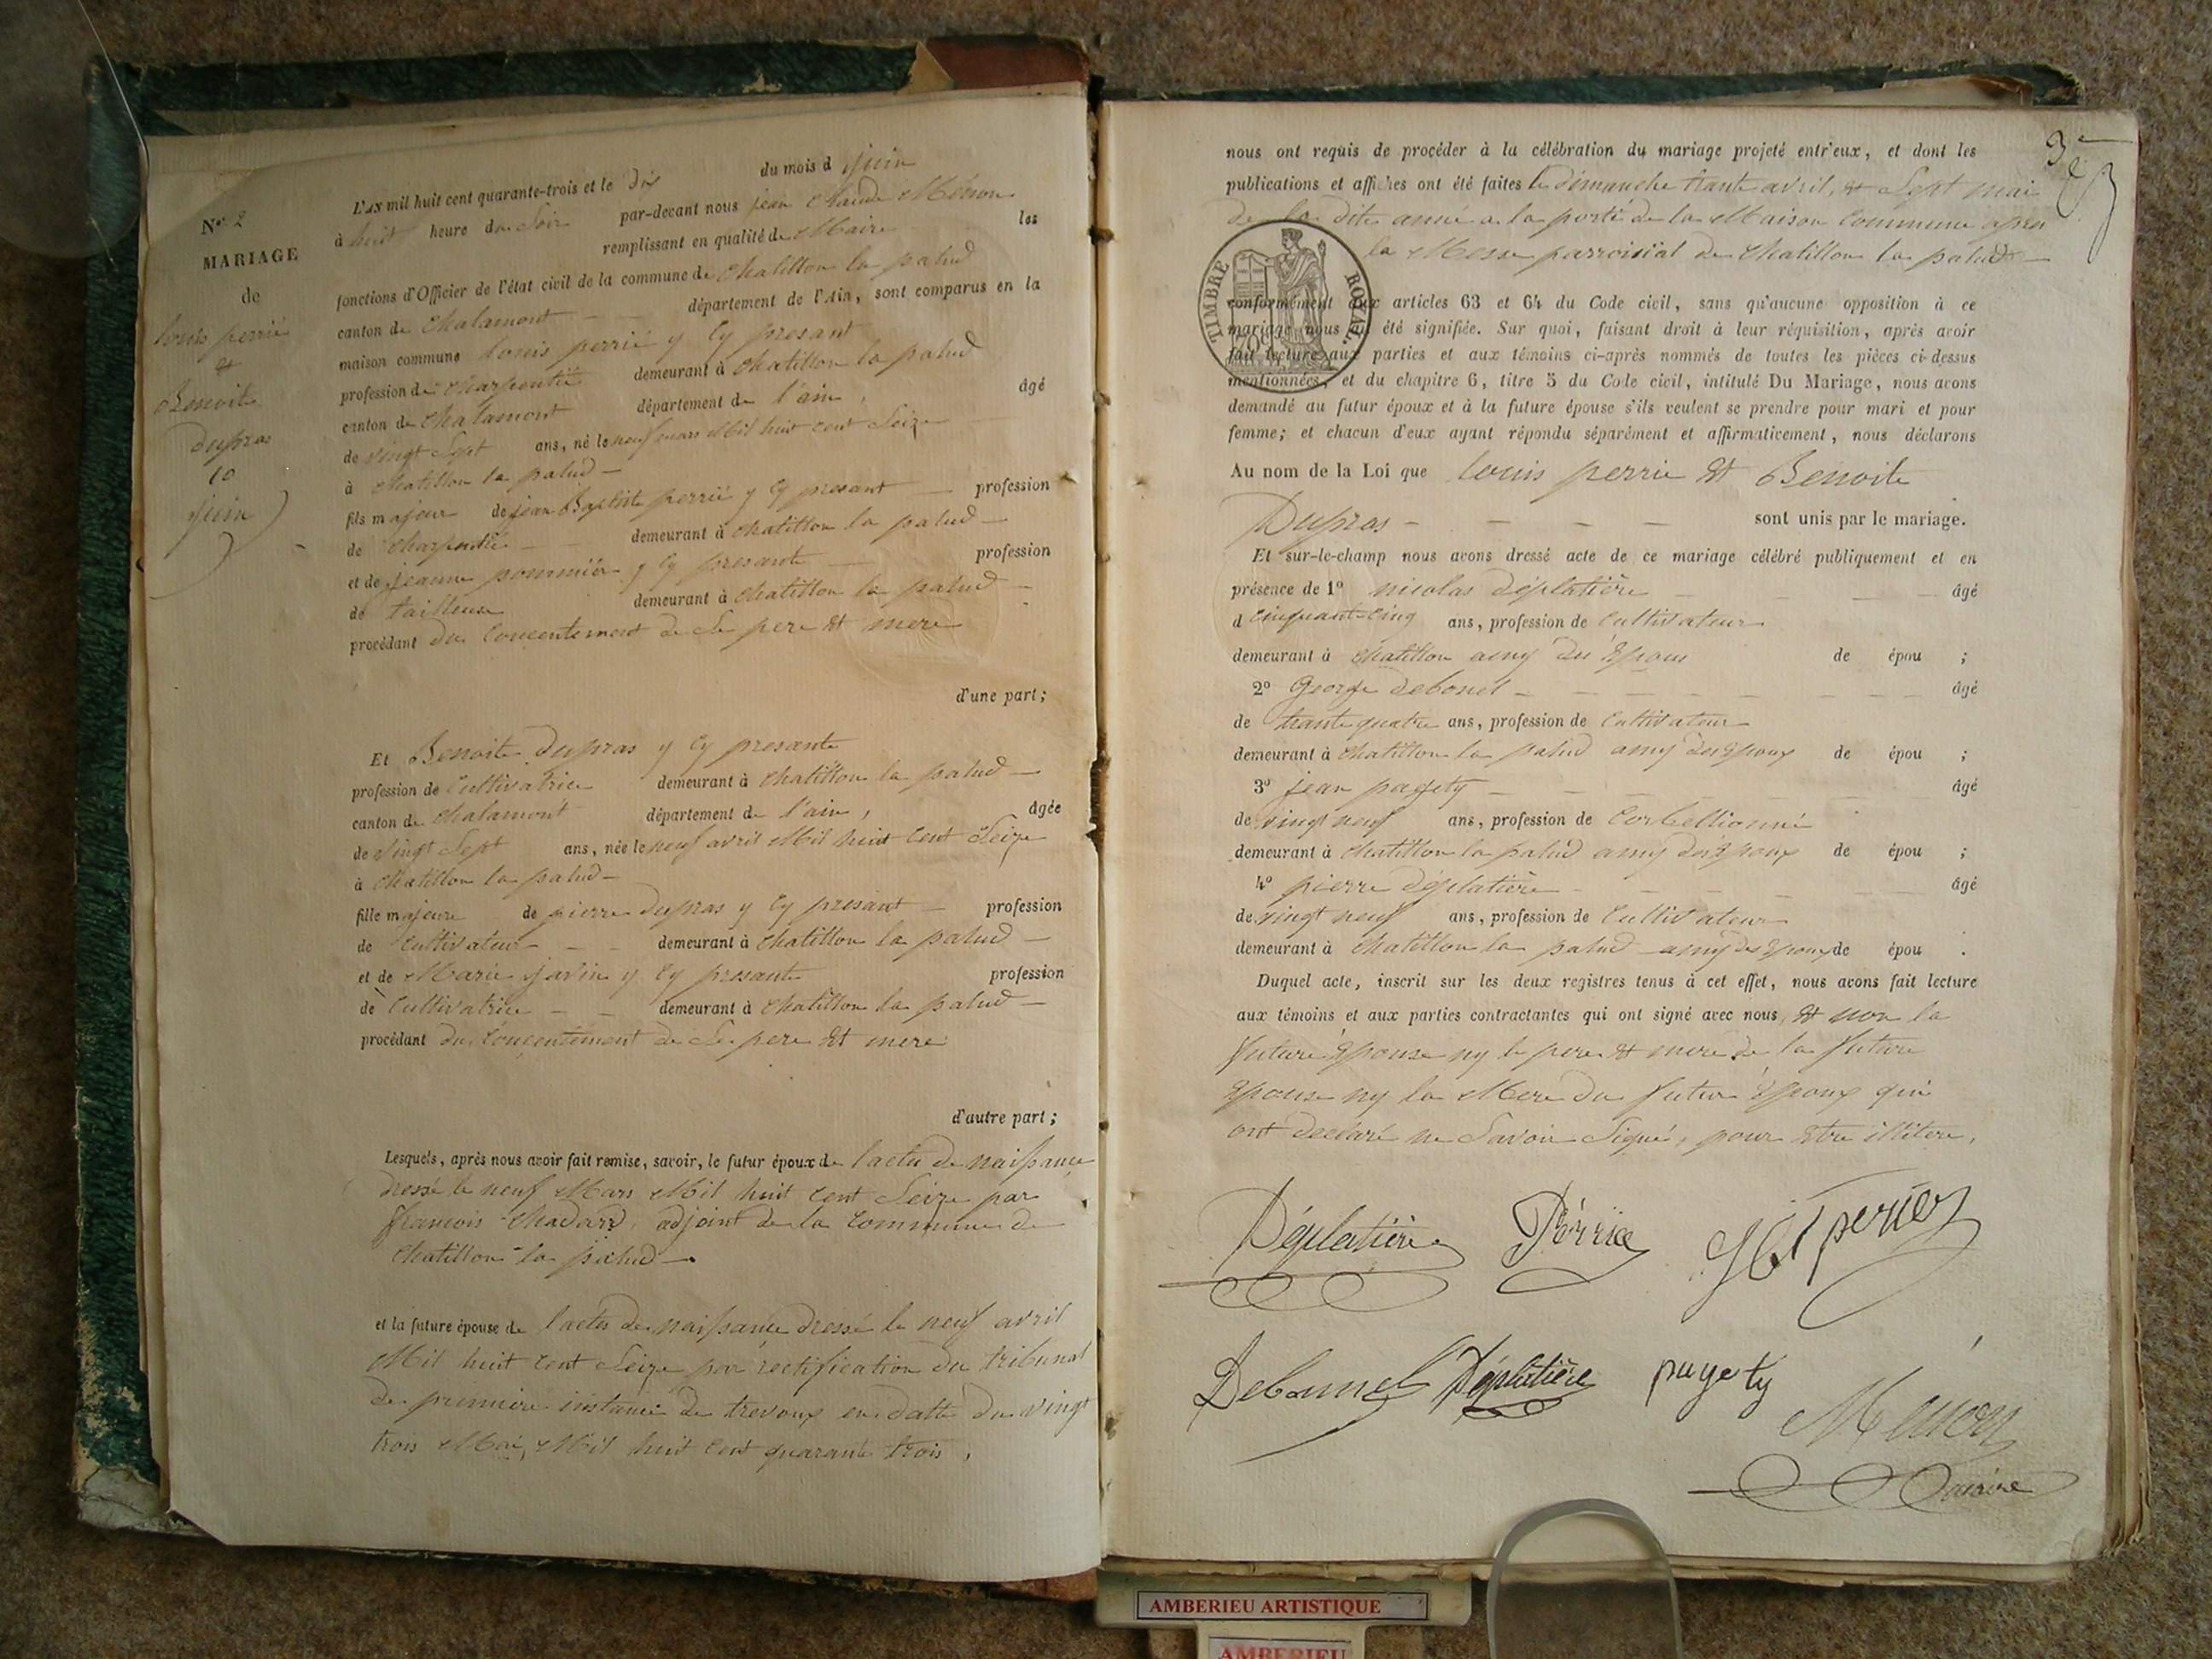 N° 2
MARIAGE
de
louis perrié
&
Benoite
Dupras
10
juin
L'AN mil huit cent quarante-trois et le dix du mois d juin
à huit heure du Soir par-devant nous jean Claude Ménon
remplissant en qualité de Maire les
fonctions d'Officier de l'état civil de la commune de Chatillon la palud
canton de Chalamont département de l'Ain, sont comparus en la
maison commune louis perrié y Cy presant
profession de Charpentié demeurant à Chatillon la palud
canton de Chalamont département de l'ain, âgé
de vingt Sept ans, né le neuf mars Mil huit cent Seize
à Chatillon la palud
fils majeur de jean Baptiste perrié y Cy presant profession
de Charpentié demeurant à Chatillon la palud
et de jeanne pommier y Cy presante profession
de tailleuse demeurant à Chatillon la palud
procédant du Concentement de Se pere et mere
d'une part;
Et Benoite Dupras y Cy presante
profession de Cultivatrice demeurant à Chatillon la palud
canton de Chalamont département de l'ain, âgée
de vingt Sept ans, née le neuf avril Mil huit Cent Seize
à Chatillon la palud
fille majeure de pierre Dupras y Cy presant profession
de Cultivateur demeurant à Chatillon la palud
et de Marie javin y Cy presante profession
de Cultivatrice demeurant à Chatillon la palud
procédant du Concentement de Se pere et mere
d'autre part;
Lesquels, après nous avoir fait remise, savoir, le futur époux de l'actes de naissance
dressé le neuf Mars Mil huit Cent Seize par
francois Chadard, adjoint de la Commune de
Chatillon la palud
et la future épouse de l'actes de naissance dressé le neuf avril
Mil huit Cent Seize par rectification du tribunal
de premiere instance de trevoux en datte du vingt
trois Mai, Mil huit Cent quarante trois,
3e
nous ont requis de procéder à la célébration du mariage projeté entr'eux, et dont les
publications et affiches ont été faites le dimanche trante avril, & Sept mai
de la dite année a la porte de la Maison Commune apres
la Messe parroisial de Chatillon la palud
TIMBRE ROYAL
70c
conformément aux articles 63 et 64 du Code civil, sans qu'aucune opposition à ce
mariage nous ait été signifiée. Sur quoi, faisant droit à leur réquisition, après avoir
fait lecture aux parties et aux témoins ci-après nommés de toutes les pièces ci-dessus
mentionnées, et du chapitre 6, titre 5 du Code civil, intitulé Du Mariage, nous avons
demandé au futur époux et à la future épouse s'ils veulent se prendre pour mari et pour
femme; et chacun d'eux ayant répondu séparément et affirmativement, nous déclarons
Au nom de la Loi que louis perrie et Benoite
Dupras sont unis par le mariage.
Et sur-le-champ nous avons dressé acte de ce mariage célébré publiquement et en
présence de 1° nicolas Déplatière âgé
d cinquante-cinq ans, profession de Cultivateur
demeurant à Chatillon amy du Epoux de épou ;
2° George Debonel âgé
de trante quatre ans, profession de Cultivateur
demeurant à Chatillon la palud amy des Epoux de épou ;
3° jean pagety âgé
de vingt neuf ans, profession de
demeurant à Chatillon la palud amy des Epoux de épou ;
4° pierre Déplatière âgé
de vingt neuf ans, profession de Cultivateur
demeurant à Chatillon la palud amy des Epoux de épou .
Duquel acte, inscrit sur les deux registres tenus à cet effet, nous avons fait lecture
aux témoins et aux parties contractantes qui ont signé avec nous, et non la
future Epouse ny le pere & mere de la future
Epouse ny la Mere du futur Epoux qui
ont declaré ne Savoir Signé, pour etre illitere,
Déplatière Périé perier
Debonnel Déplatière pagety
Ménon
maire
AMBERIEU ARTISTIQUE
AMBERIEU